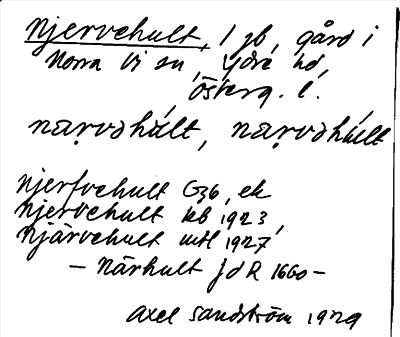 Njervehult, 1 gb, gård i
Norra Vi sn, Ydre hd,
Österg. l.
Njerfvehult G36, ek
Njervehult kb 1923,
Njärvehult mtl 1927,
– Närhult JdR 1660 –
Axel Sandström 1929